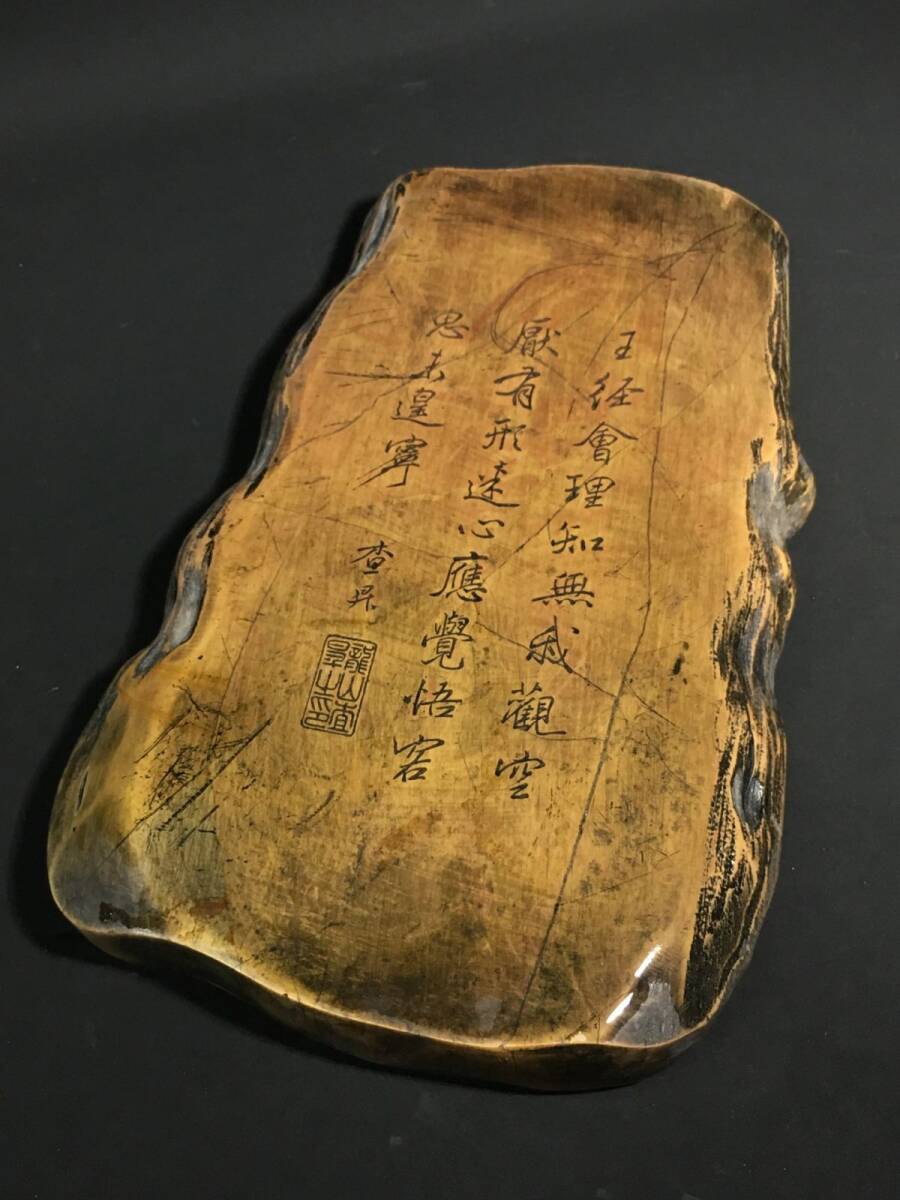 王経會理知無我觀空
厭有形迷心應覺悟客
思未遑寧
查昇